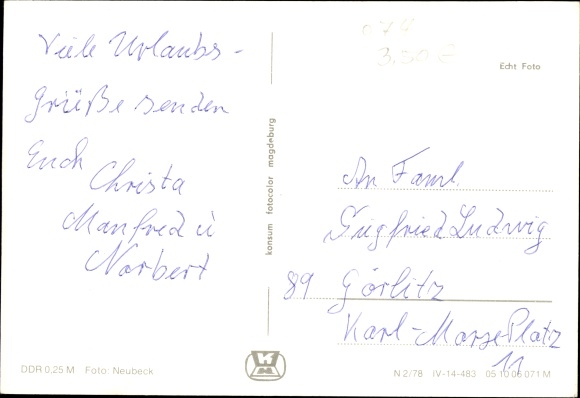 Viele Urlaubs-
grüße senden
Euch
Christa
Manfred u
Norbert
DDR 0,25 M Foto: Neubeck
konsum fotocolor magdeburg
Echt Foto
An Faml.
Siegfried Ludwig
89 Görlitz
Karl-Marx-Platz
11
N 2/78 IV-14-483 05 10 06 071 M